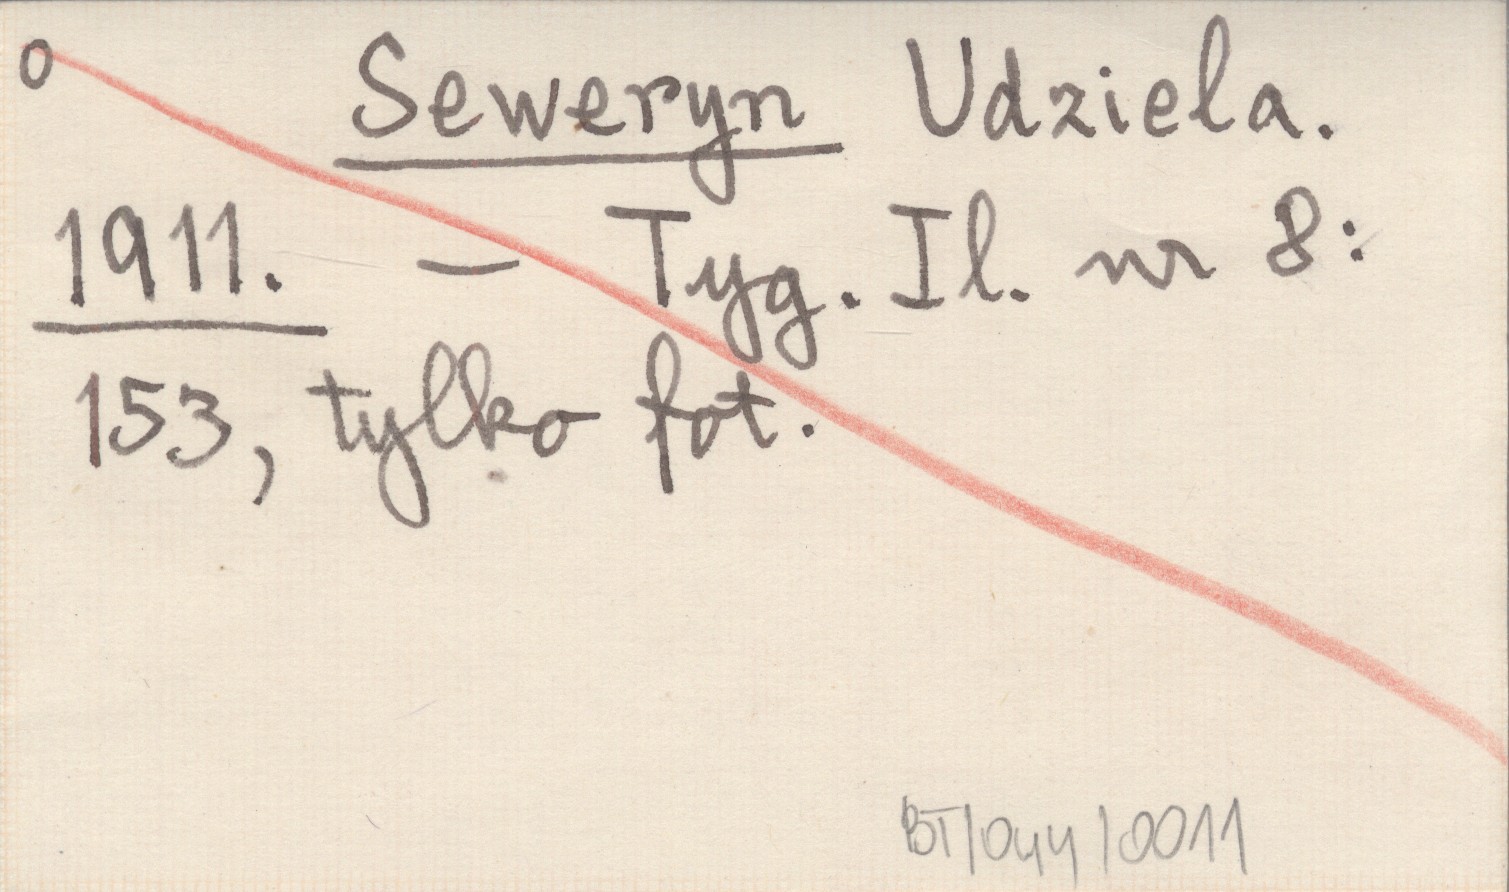 o Seweryn Udziela.
1911. — Tyg. Il. nr 8:
153, tylko fot.
BT/044/0011